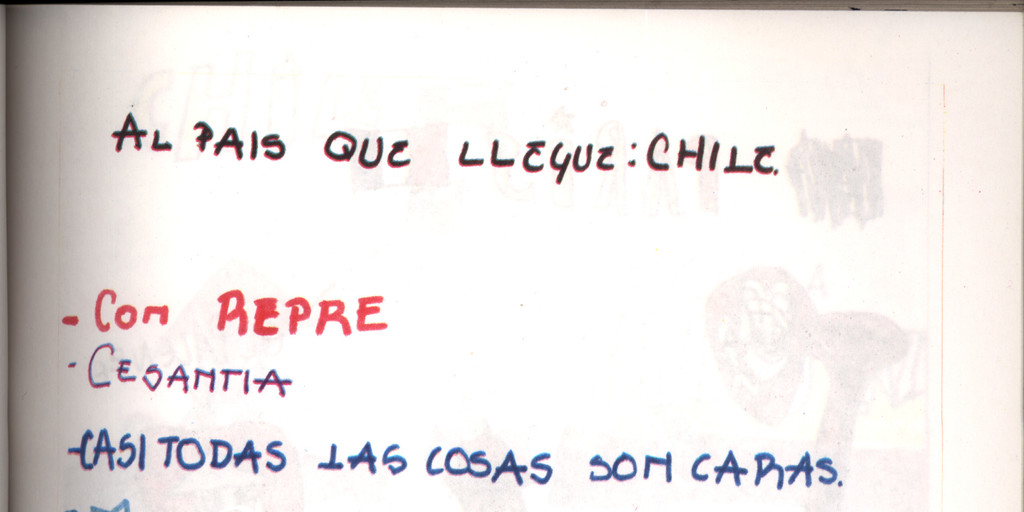 AL PAIS QUE LLEGUE: CHILE.
- CON REPRE
- CESANTIA
- CASI TODAS LAS COSAS SON CARAS.